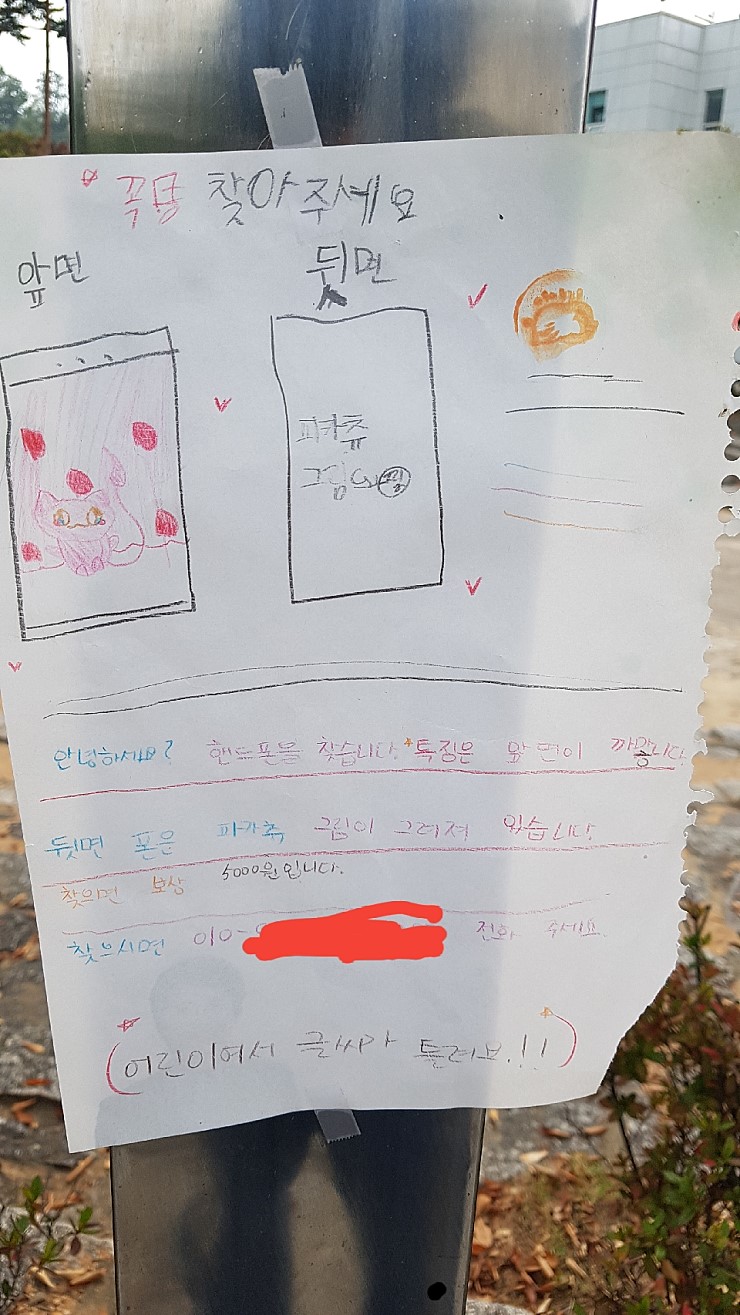 꼭 찾아주세요
앞면
뒷면
피카츄
그림
안녕하세요? 핸드폰을 찾습니다 특징은 앞면이
뒷면 폰은 피카츄 그림이 그려져 있습니다
찾으면 보상 5000원입니다.
찾으시면 010- 전화 주세요.
(어린이여서 글씨가 틀려요.!!)